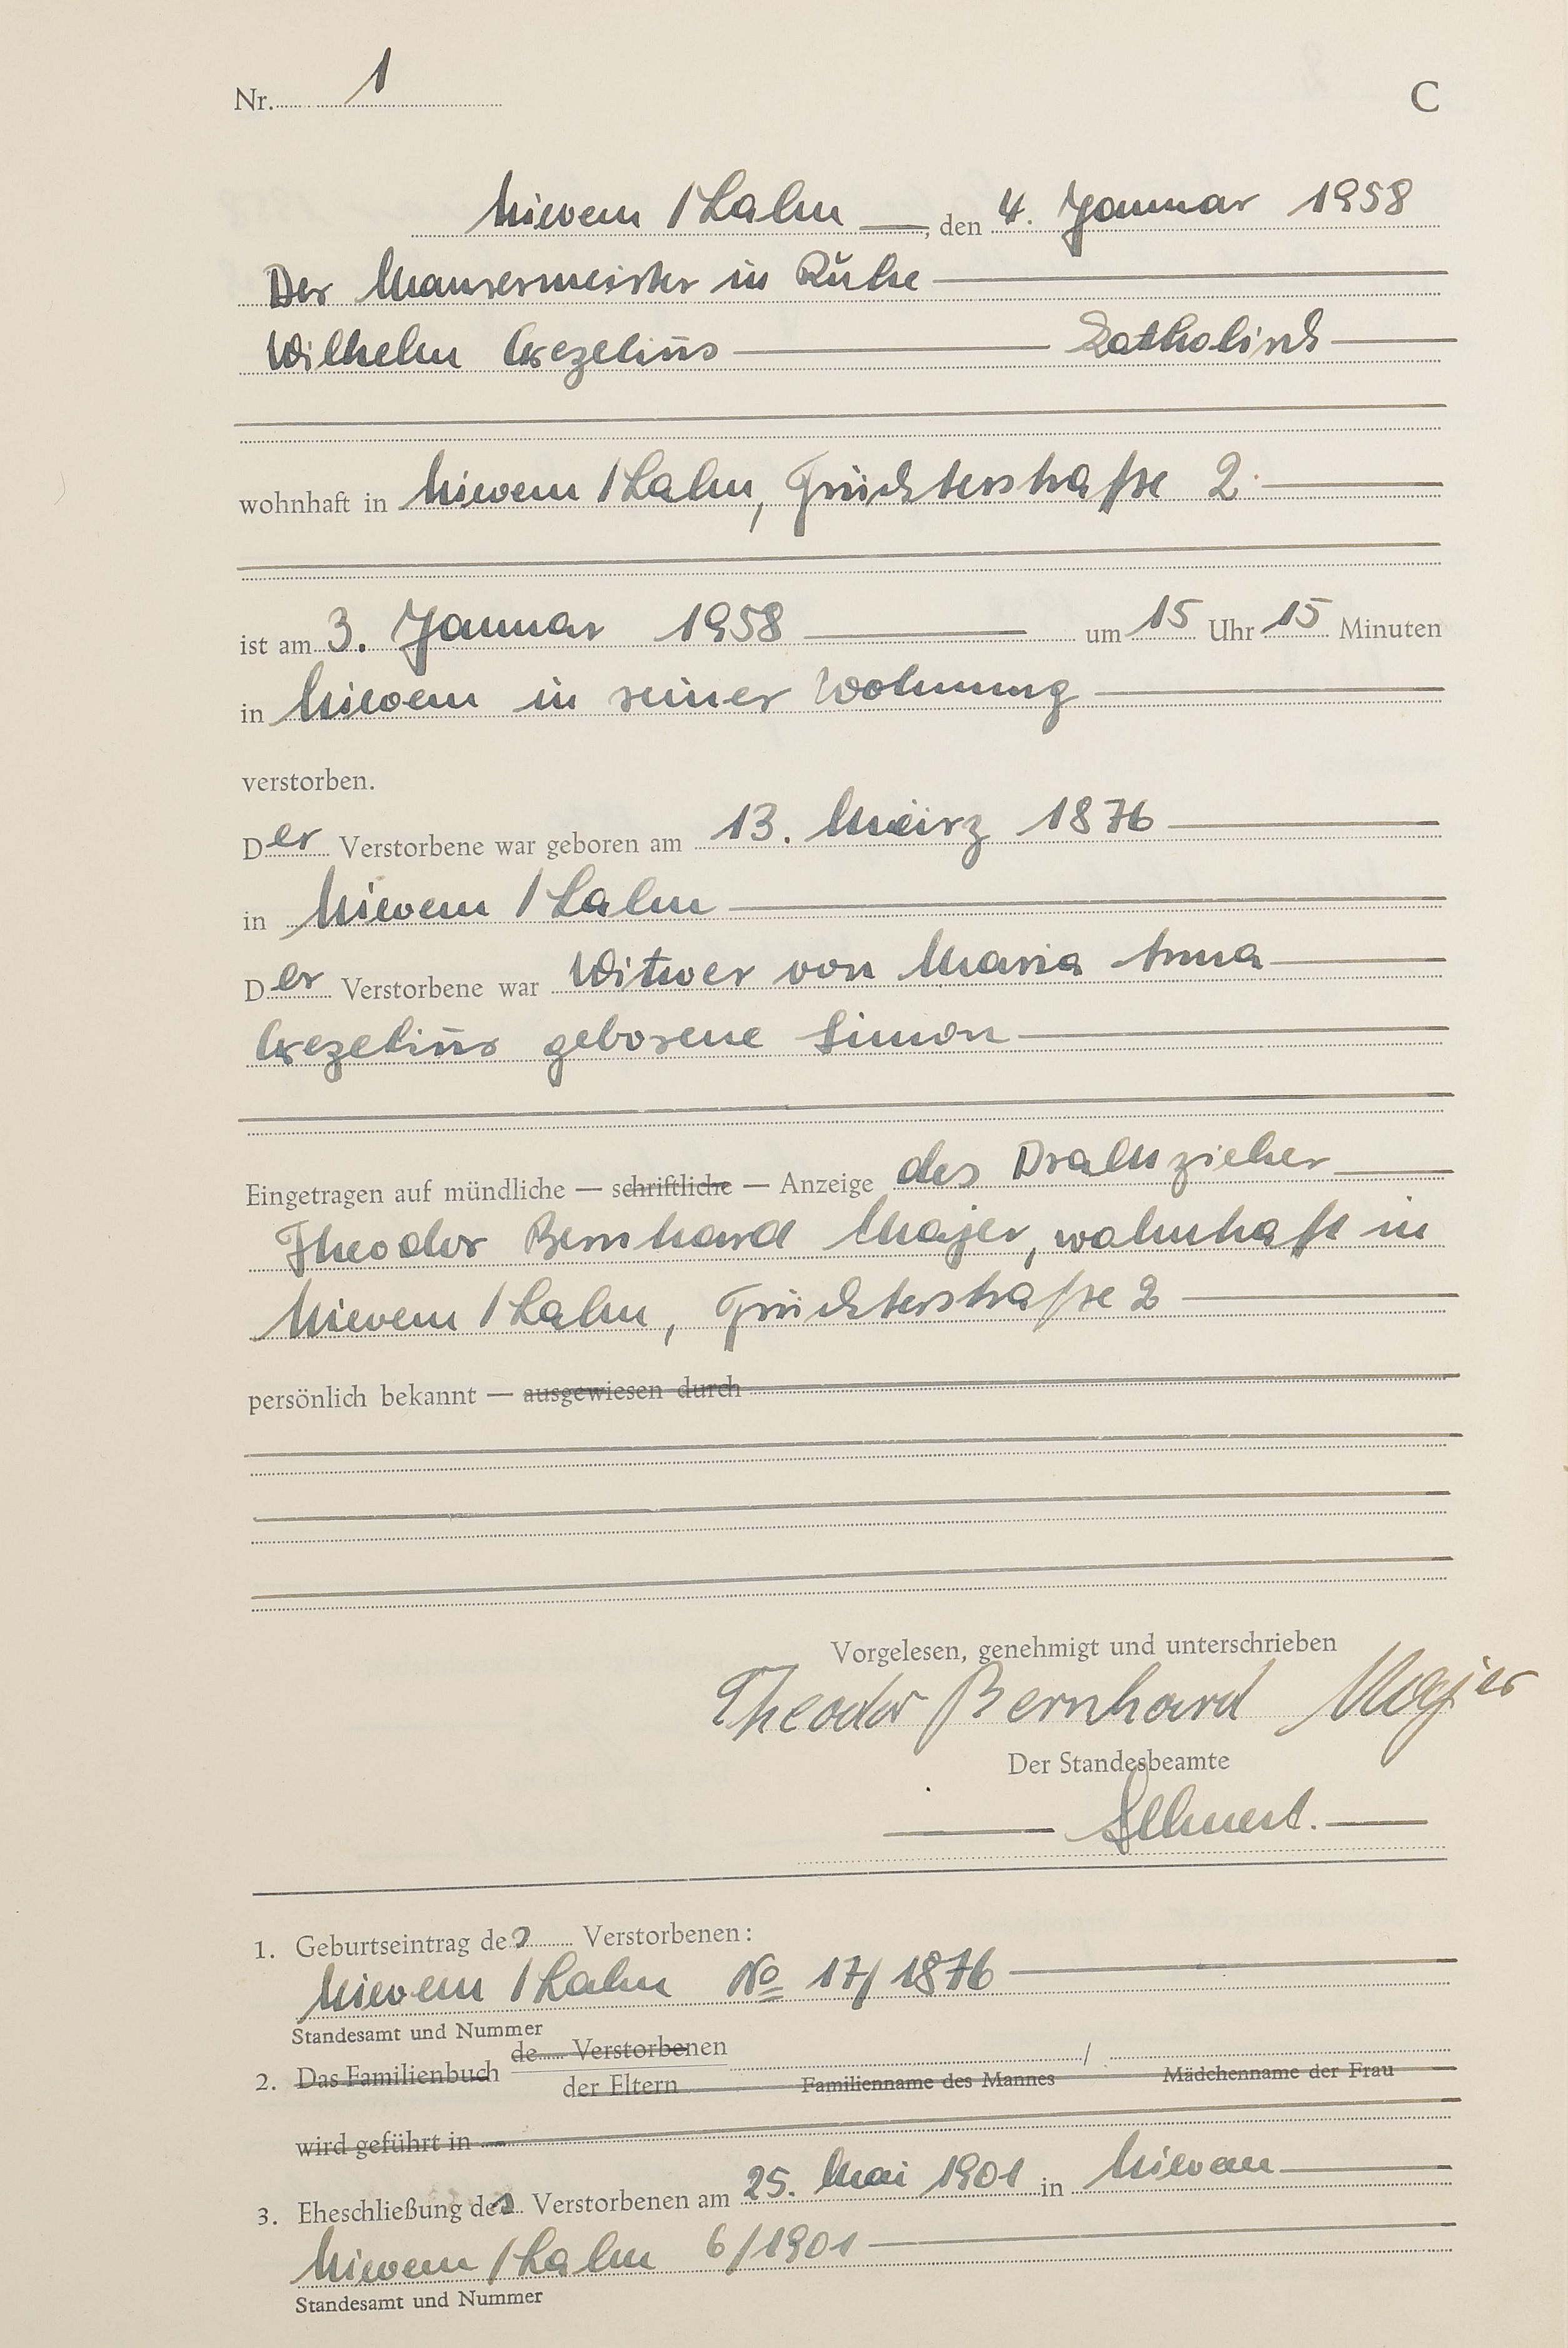 Nr. 1 C
Nievern / Lahn —, den 4. Januar 1958
Der Maurermeister in Ruhe
Wilhelm Gezelius — katholisch
wohnhaft in Nievern / Lahn, Früchterstraße 2
ist am 3. Januar 1958 um 15 Uhr 15 Minuten
in Nievern in seiner Wohnung
verstorben.
Der Verstorbene war geboren am 13. März 1876
in Nievern / Lahn
Der Verstorbene war Witwer von Maria Anna
Gezelius geborene Simon
Eingetragen auf mündliche — schriftliche — Anzeige des Drahtzieher
Theodor Bernhard Majer, wohnhaft in
Nievern / Lahn, Früchterstraße 2
persönlich bekannt — ausgewiesen durch
Vorgelesen, genehmigt und unterschrieben
Theodor Bernhard Majer
Der Standesbeamte
1. Geburtseintrag des Verstorbenen:
Nievern / Lahn No 17/1876
Standesamt und Nummer
2. Das Familienbuch de Verstorbenen /
der Eltern Familienname des Mannes Mädchenname der Frau
wird geführt in
3. Eheschließung des Verstorbenen am 25. Mai 1901 in Nievern
Nievern / Lahn 6/1901
Standesamt und Nummer